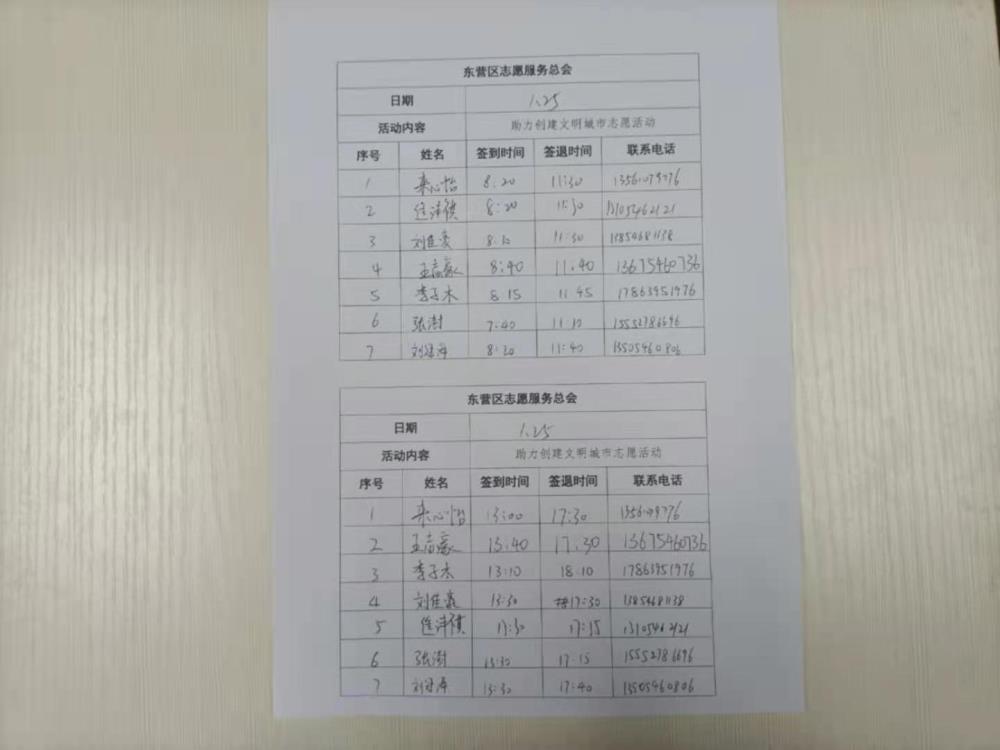 东营区志愿服务总会
日期 1.25
活动内容 助力创建文明城市志愿活动
序号 姓名 签到时间 签退时间 联系电话
1 栾心怡 8:20 11:30
2 8:20 11:30
3 刘佳豪 11:30
4 8:40 11.40 13675460736
5 李子木 8 15 11 45 17863951976
6 张澍 7:40 11:10 15552786696
7 8:30 11:40 13505460806
东营区志愿服务总会
日期 1.25
活动内容 助力创建文明城市志愿活动
序号 姓名 签到时间 签退时间 联系电话
1 栾心怡 13:00 17:30
2 13.40 17.30 13675460736
3 李子木 13:10 18:10 17863951976
4 刘佳豪 13:30 17:30
5 17:15
6 张澍 13:30 17:15 15552786696
7 13:30 17:40 13505460806